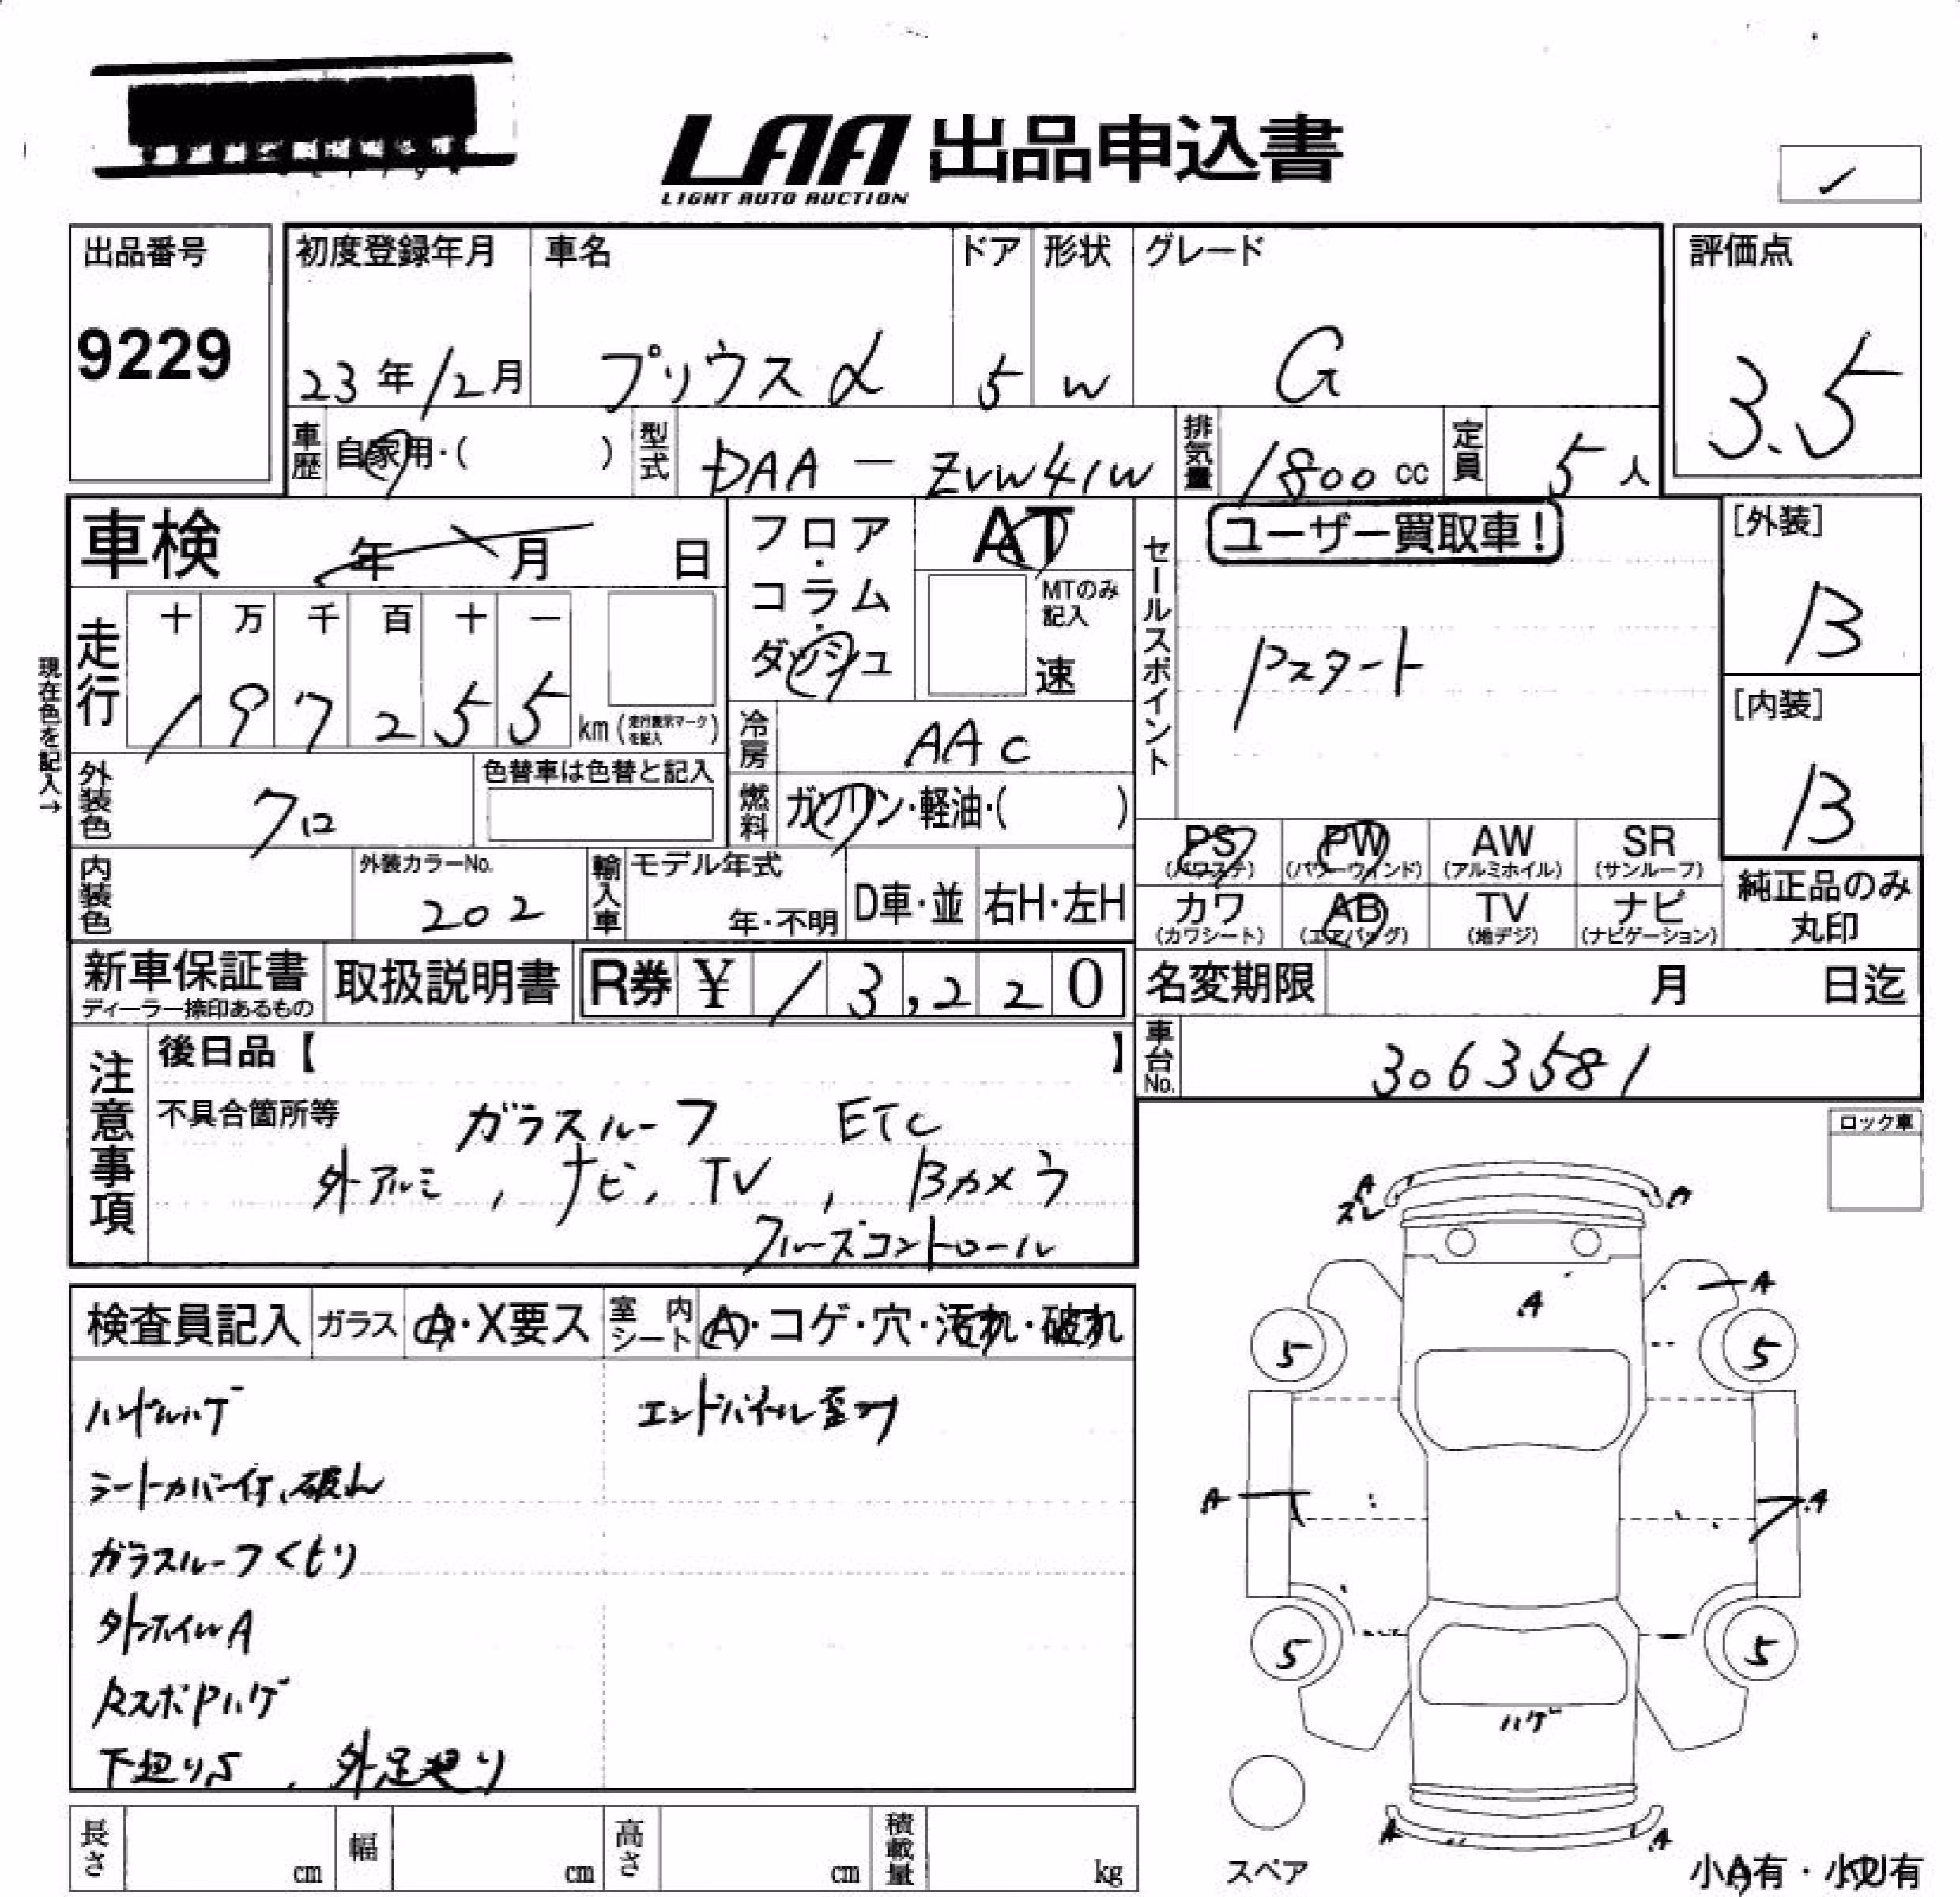 LAA 出品申込書
LIGHT AUTO AUCTION
出品番号
9229
初度登録年月
23年12月
車名
プリウスα
ドア
5
形状
W
グレード
G
評価点
3.5
車歴 自家用・( )
型式 DAA-ZVW41W
排気量 1800 cc
定員 5人
車検 年 月 日
フロア・コラム・ダッシュ
AT
MTのみ記入
速
セールスポイント
ユーザー買取車!
Pスタート
[外装]
B
[内装]
B
現在色を記入→
走行
十 万 千 百 十 一
1 9 7 2 5 5 km (走行表示マークを記入)
冷房 AAC
外装色 クロ
色替車は色替と記入
燃料 ガソリン・軽油・( )
内装色
外装カラーNo.
202
輸入車
モデル年式
年・不明
D車・並
右H・左H
PS (パワステ)
PW (パワーウインド)
AW (アルミホイル)
SR (サンルーフ)
カワ (カワシート)
AB (エアバッグ)
TV (地デジ)
ナビ (ナビゲーション)
純正品のみ丸印
新車保証書
ディーラー捺印あるもの
取扱説明書
R券 ¥ 13,220
名変期限 月 日迄
車台No. 3063581
注意事項
後日品【 】
不具合箇所等 ガラスルーフ ETC
外アルミ, ナビ, TV, Bカメラ
クルーズコントロール
ロック車
検査員記入
ガラス A・X要ス
室内シート A・コゲ・穴・汚れ・破れ
ハンドルハゲ
エンドパネル歪み
シートカバー付、破れ
ガラスルーフくもり
外ホイルA
RスポPハゲ
下廻りS , 外足廻り
A
スレ
A
A
A
5
5
A
A
5
5
ハゲ
A
A
スペア
小A有・小U有
長さ cm
幅 cm
高さ cm
積載量 kg